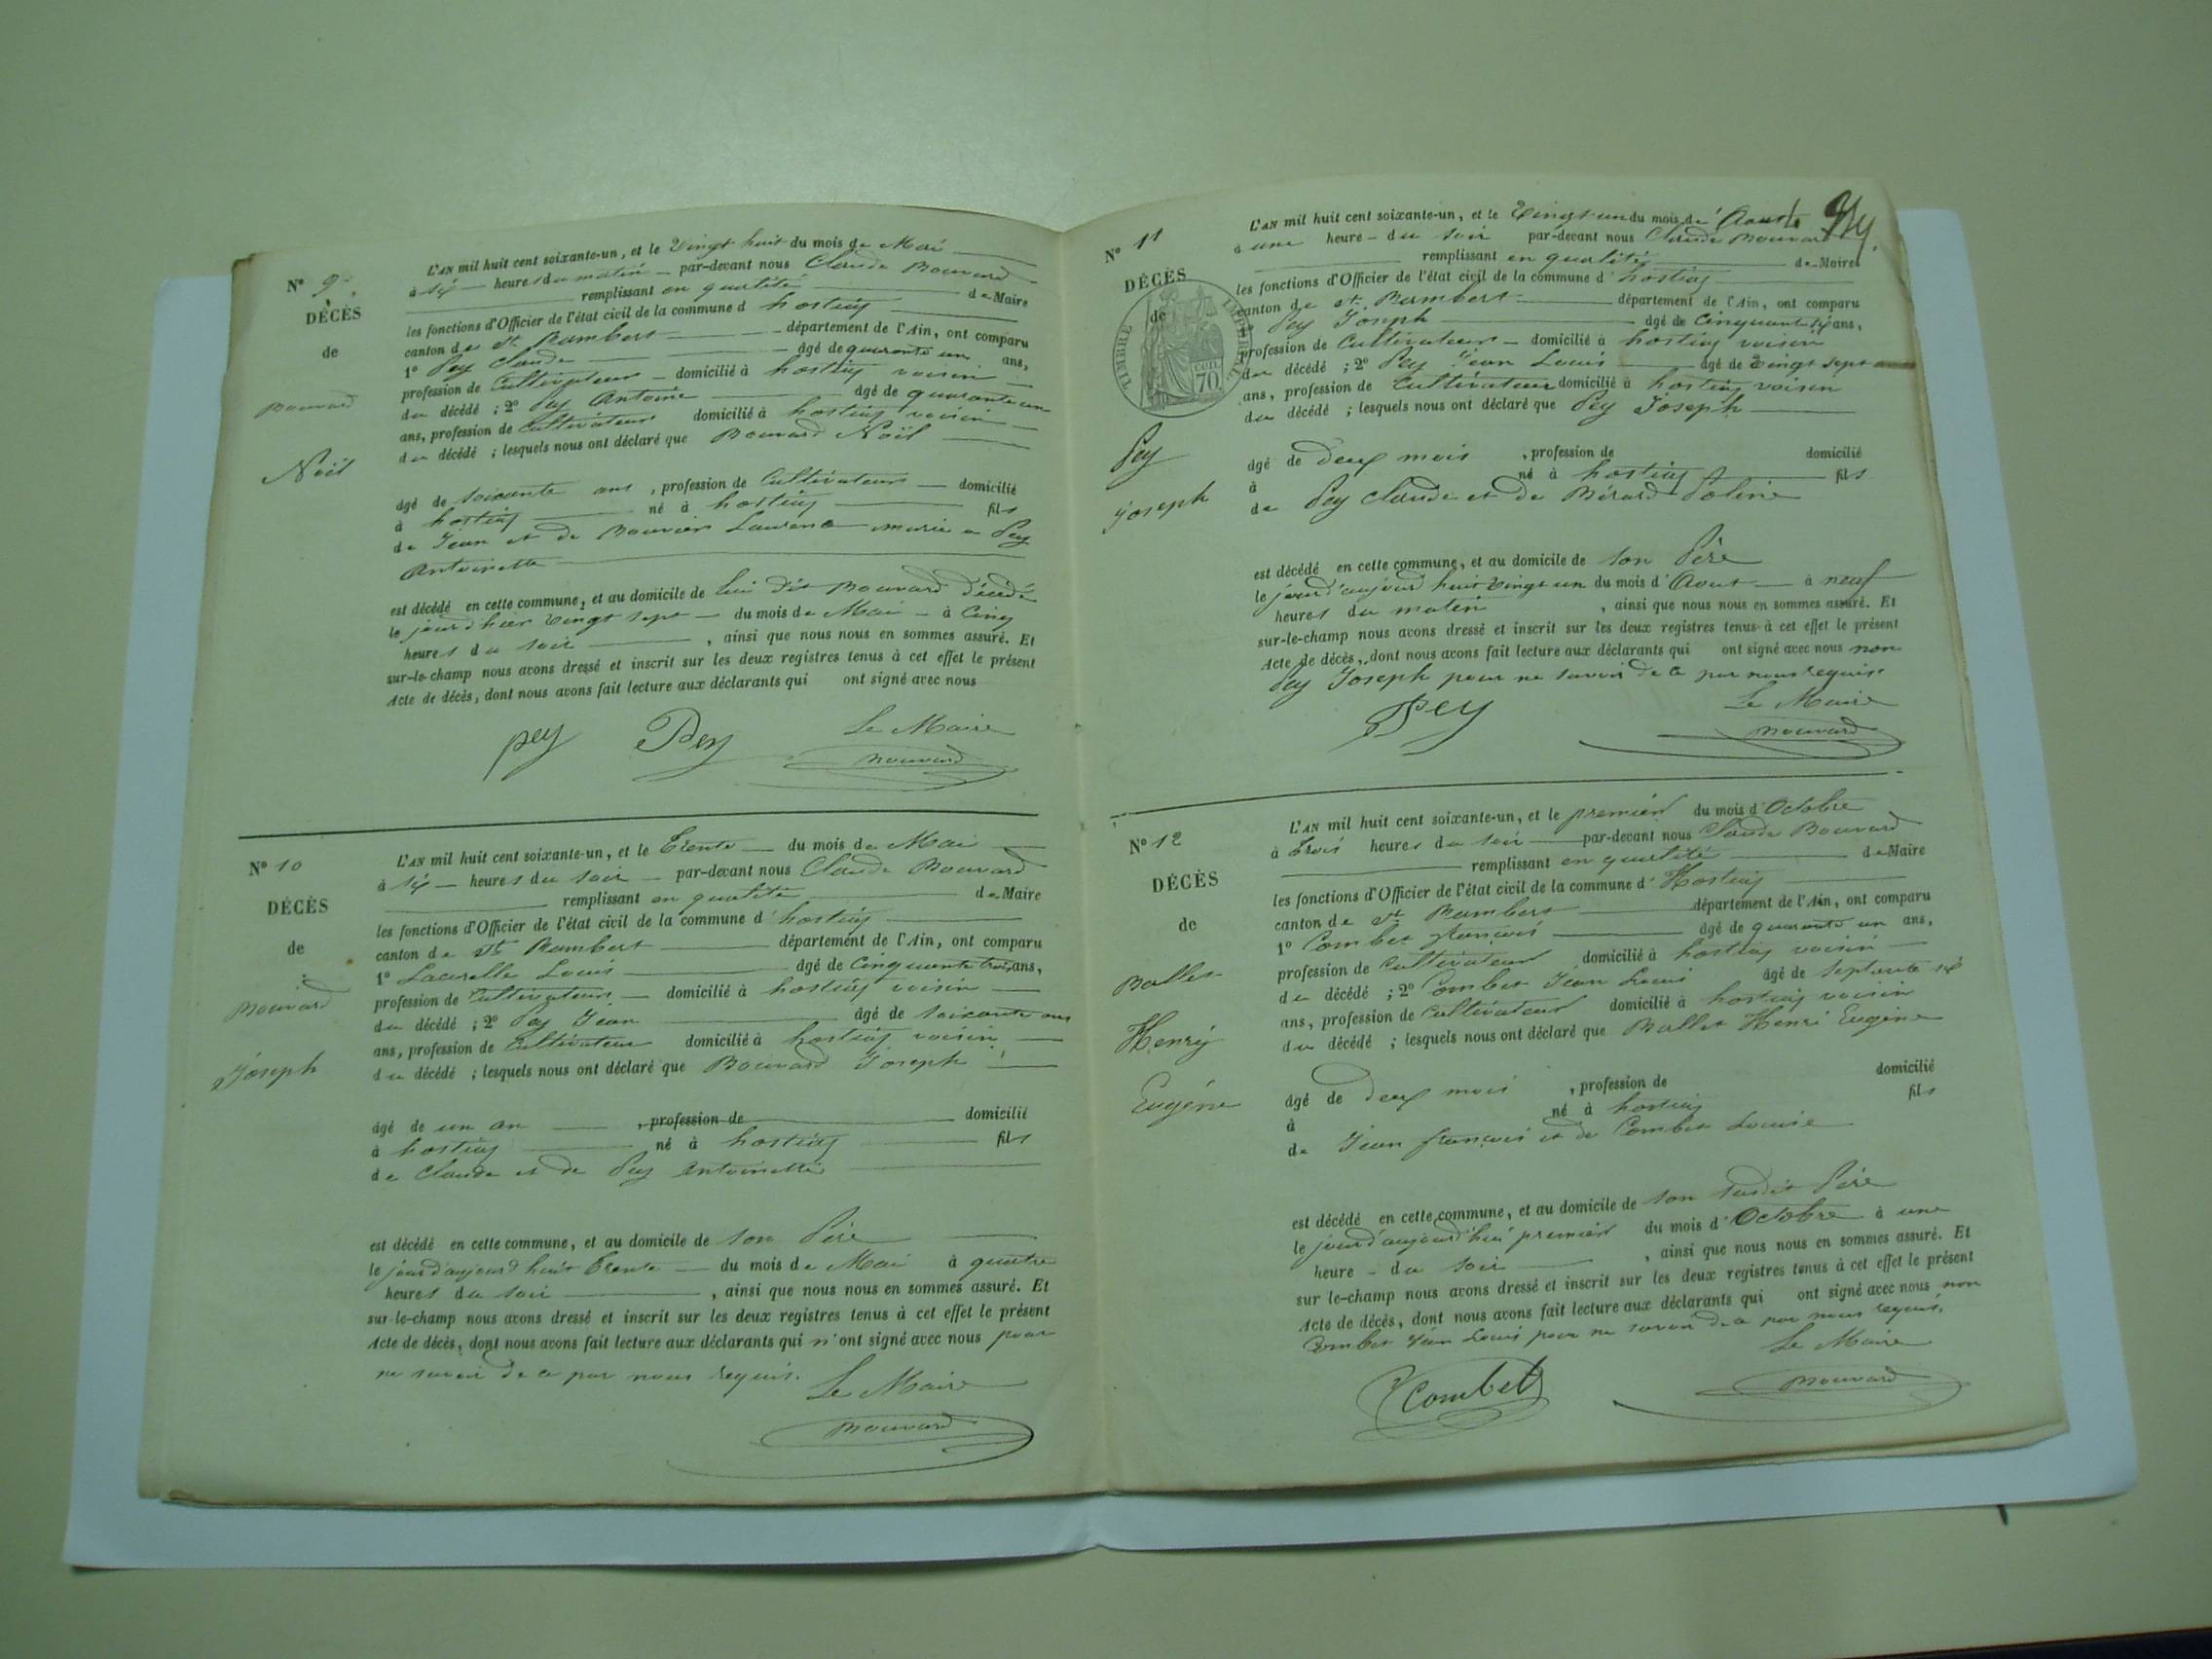 N° 9
DÉCÈS
de
Bouvard
Noël
L'AN mil huit cent soixante-un, et le Vingt huit du mois de Mai
à six heures du matin par-devant nous Claude Bouvard
remplissant en qualité de Maire
les fonctions d'Officier de l'état civil de la commune d hostiaz
canton de St Rambert département de l'Ain, ont comparu
1° Pey Claude âgé de quarante un ans,
profession de Cultivateur domicilié à hostiaz voisin
du décédé ; 2° Pey Antoine âgé de quarante un
ans, profession de Cultivateur domicilié à hostiaz voisin
du décédé ; lesquels nous ont déclaré que Bouvard Noël
âgé de soixante ans , profession de Cultivateur domicilié
à hostiaz né à hostiaz fils
de Jean et de Bouvier Laurence marié a Pey
Antoinette
est décédé en cette commune, et au domicile de lui dit Bouvard décédé
le jour d'hier vingt sept du mois de Mai à Cinq
heures du soir , ainsi que nous nous en sommes assuré. Et
sur-le-champ nous avons dressé et inscrit sur les deux registres tenus à cet effet le présent
Acte de décès, dont nous avons fait lecture aux déclarants qui ont signé avec nous
pey Pey Le Maire
Bouvard
N° 10
DÉCÈS
de
Bouvard
Joseph
L'AN mil huit cent soixante-un, et le Trente du mois de Mai
à six heures du soir par-devant nous Claude Bouvard
remplissant en qualité de Maire
les fonctions d'Officier de l'état civil de la commune d' hostiaz
canton de St Rambert département de l'Ain, ont comparu
1° Lacroix Louis âgé de Cinquante trois ans,
profession de Cultivateur domicilié à hostiaz voisin
du décédé ; 2° Pey Jean âgé de soixante ans
ans, profession de Cultivateur domicilié à hostiaz voisin
du décédé ; lesquels nous ont déclaré que Bouvard Joseph
âgé de un an , profession de domicilié
à hostiaz né à hostiaz fils
de Claude et de Pey Antoinette
est décédé en cette commune, et au domicile de son Père
le jour d'aujourd huit Trente du mois de Mai à quatre
heures du soir , ainsi que nous nous en sommes assuré. Et
sur-le-champ nous avons dressé et inscrit sur les deux registres tenus à cet effet le présent
Acte de décès, dont nous avons fait lecture aux déclarants qui n'ont signé avec nous pour
ne savoir de ce par nous requis.
Le Maire
Bouvard
N° 11
DÉCÈS
de
TIMBRE IMPÉRIAL
70
Pey
Joseph
L'AN mil huit cent soixante-un, et le Vingt un du mois de Aout
à une heure du soir par-devant nous Claude Bouvard
remplissant en qualité de Maire
les fonctions d'Officier de l'état civil de la commune d' hostiaz
canton de St Rambert département de l'Ain, ont comparu
1° Pey Joseph âgé de Cinquante six ans,
profession de Cultivateur domicilié à hostiaz voisin
du décédé ; 2° Pey Jean Louis âgé de Vingt sept
ans, profession de Cultivateur domicilié à hostiaz voisin
du décédé ; lesquels nous ont déclaré que Pey Joseph
âgé de deux mois , profession de domicilié
à né à hostiaz fils
de Pey Claude et de Bérard Poline
est décédé en cette commune, et au domicile de son Père
le jour d'aujourd huit vingt un du mois d'Aout à neuf
heures du matin , ainsi que nous nous en sommes assuré. Et
sur-le-champ nous avons dressé et inscrit sur les deux registres tenus à cet effet le présent
Acte de décès, dont nous avons fait lecture aux déclarants qui ont signé avec nous non
Pey Joseph pour ne savoir de ce par nous requis
Pey Le Maire
Bouvard
N° 12
DÉCÈS
de
Ballet
Henry
Eugène
L'AN mil huit cent soixante-un, et le premier du mois d'Octobre
à Trois heures du soir par-devant nous Claude Bouvard
remplissant en qualité de Maire
les fonctions d'Officier de l'état civil de la commune d' Hostiaz
canton de St Rambert département de l'Ain, ont comparu
1° Combet françois âgé de quarante un ans,
profession de Cultivateur domicilié à hostiaz voisin
du décédé ; 2° Combet Jean Louis âgé de septante six
ans, profession de Cultivateur domicilié à hostiaz voisin
du décédé ; lesquels nous ont déclaré que Ballet Henri Eugène
âgé de deux mois , profession de domicilié
à né à hostiaz fils
de Jean françois et de Combet Louise
est décédé en cette commune, et au domicile de son susdit Père
le jour d'aujourd'hui premier du mois d'Octobre à une
heure du soir , ainsi que nous nous en sommes assuré. Et
sur le-champ nous avons dressé et inscrit sur les deux registres tenus à cet effet le présent
Acte de décès, dont nous avons fait lecture aux déclarants qui ont signé avec nous non
Combet Jean Louis pour ne savoir de ce par nous requis.
Le Maire
Combet Bouvard